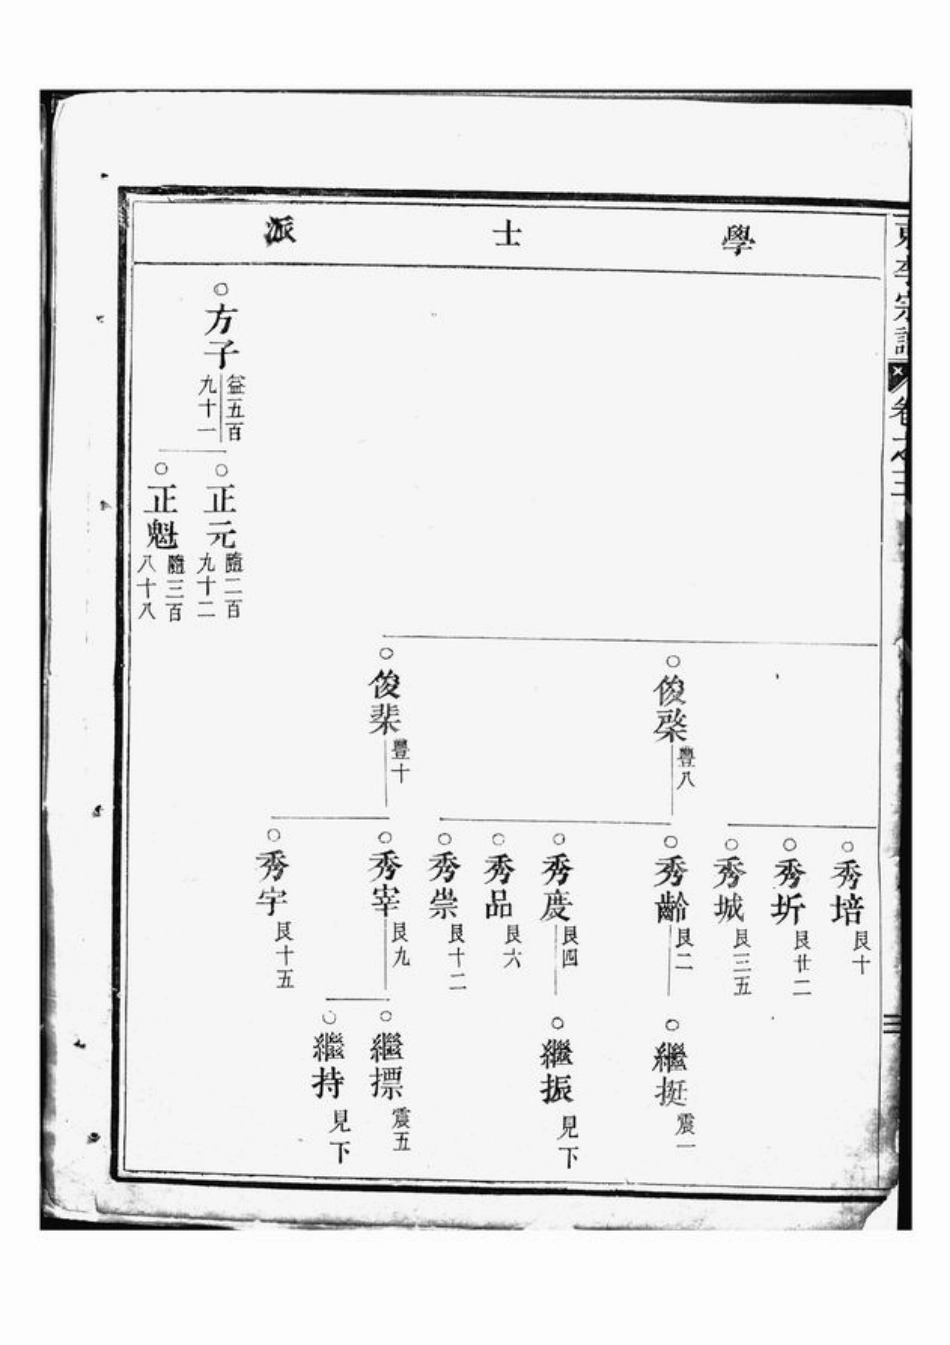 東李宗譜 卷之三
學士派
俊棨 豐八
俊棐 豐十
秀培 艮十
秀圻 艮廿二
秀城 艮三五
秀齡 艮二
秀度 艮四
秀品 艮六
秀崇 艮十二
秀宰 艮九
秀宇 艮十五
繼挺 震一
繼振 見下
繼標 震五
繼持 見下
方子 益五百九十一
正元 隨二百九十二
正魁 隨三百八十八